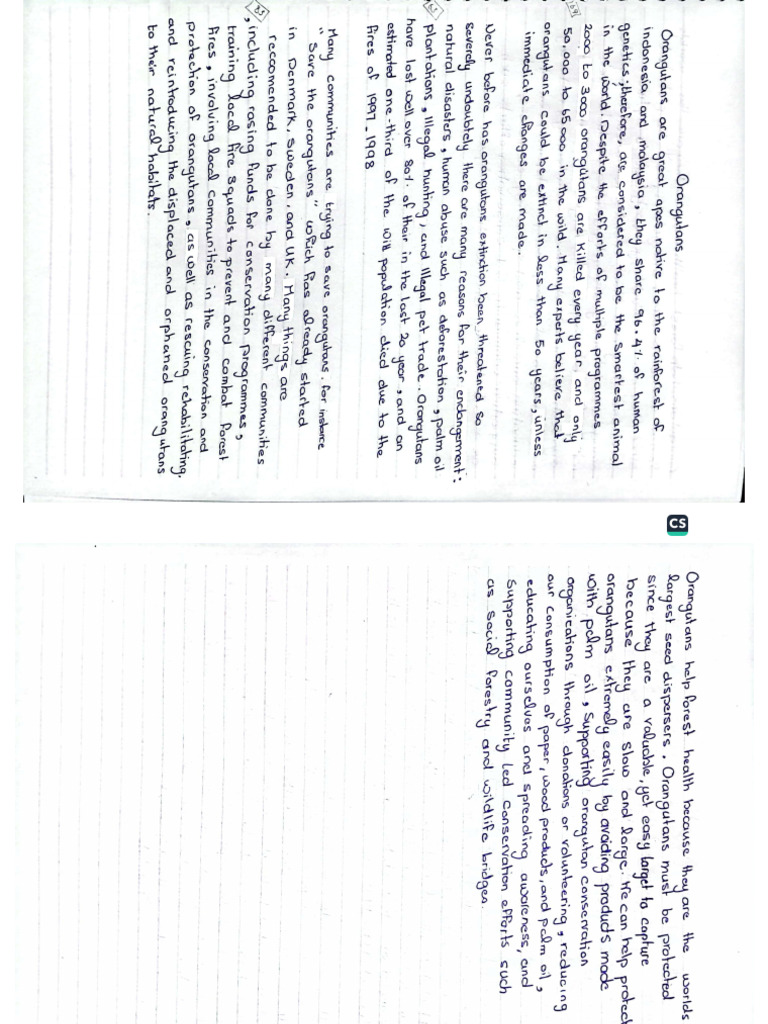 Orangutans
Orangutans are great apes native to the rainforest of
indonesia and malaysia, they share 96.4% of human
genetics;therefore, are considered to be the smartest animal
in the world. Despite the efforts of multiple programmes
2000 to 3000 orangutans are killed every year, and only
50,000 to 65000 in the wild. Many experts believe that
orangutans could be extinct in less than 50 years, unless
immediate changes are made.
Never before has orangutans extinction been threatened so
severely undoubtely there are many reasons for their endangerment:
natural disasters, human abuse such as deforestation, palm oil
plantations, Illegal hunting, and Illegal pet trade. Orangutans
have lost well over 80% of their in the last 20 year, and an
estimated one-third of the will population died due to the
fires of 1997_1998
Many communities are trying to save orangutans. for instance
"Save the orangutans" which has already started
in Denmark, Sweden, and UK. Many things are
reccomended to be done by many different communities
, including rasing funds for conservation programmes,
training local fire squads to prevent and combat forest
fires, involving local communities in the conservation and
protection of orangutans, as well as rescuing rehabilitating.
and reintroducing the displaced and orphaned orangutans
to their natural habitats.
CS
Orangutans help forest health because they are the worlds
largest seed dispersers. Orangutans must be protected
since they are a valuable, yet easy target to capture
because they are slow and large. We can help protect
orangutans extremely easily by avoiding products made
with palm oil, supporting orangutan conservation
organications through donations or volunteering, reducing
our consumption of paper, wood products, and palm oil,
educating ourselves and spreading awareness, and
supporting community led conservation efforts such
as social forestry and wildlife bridgen.